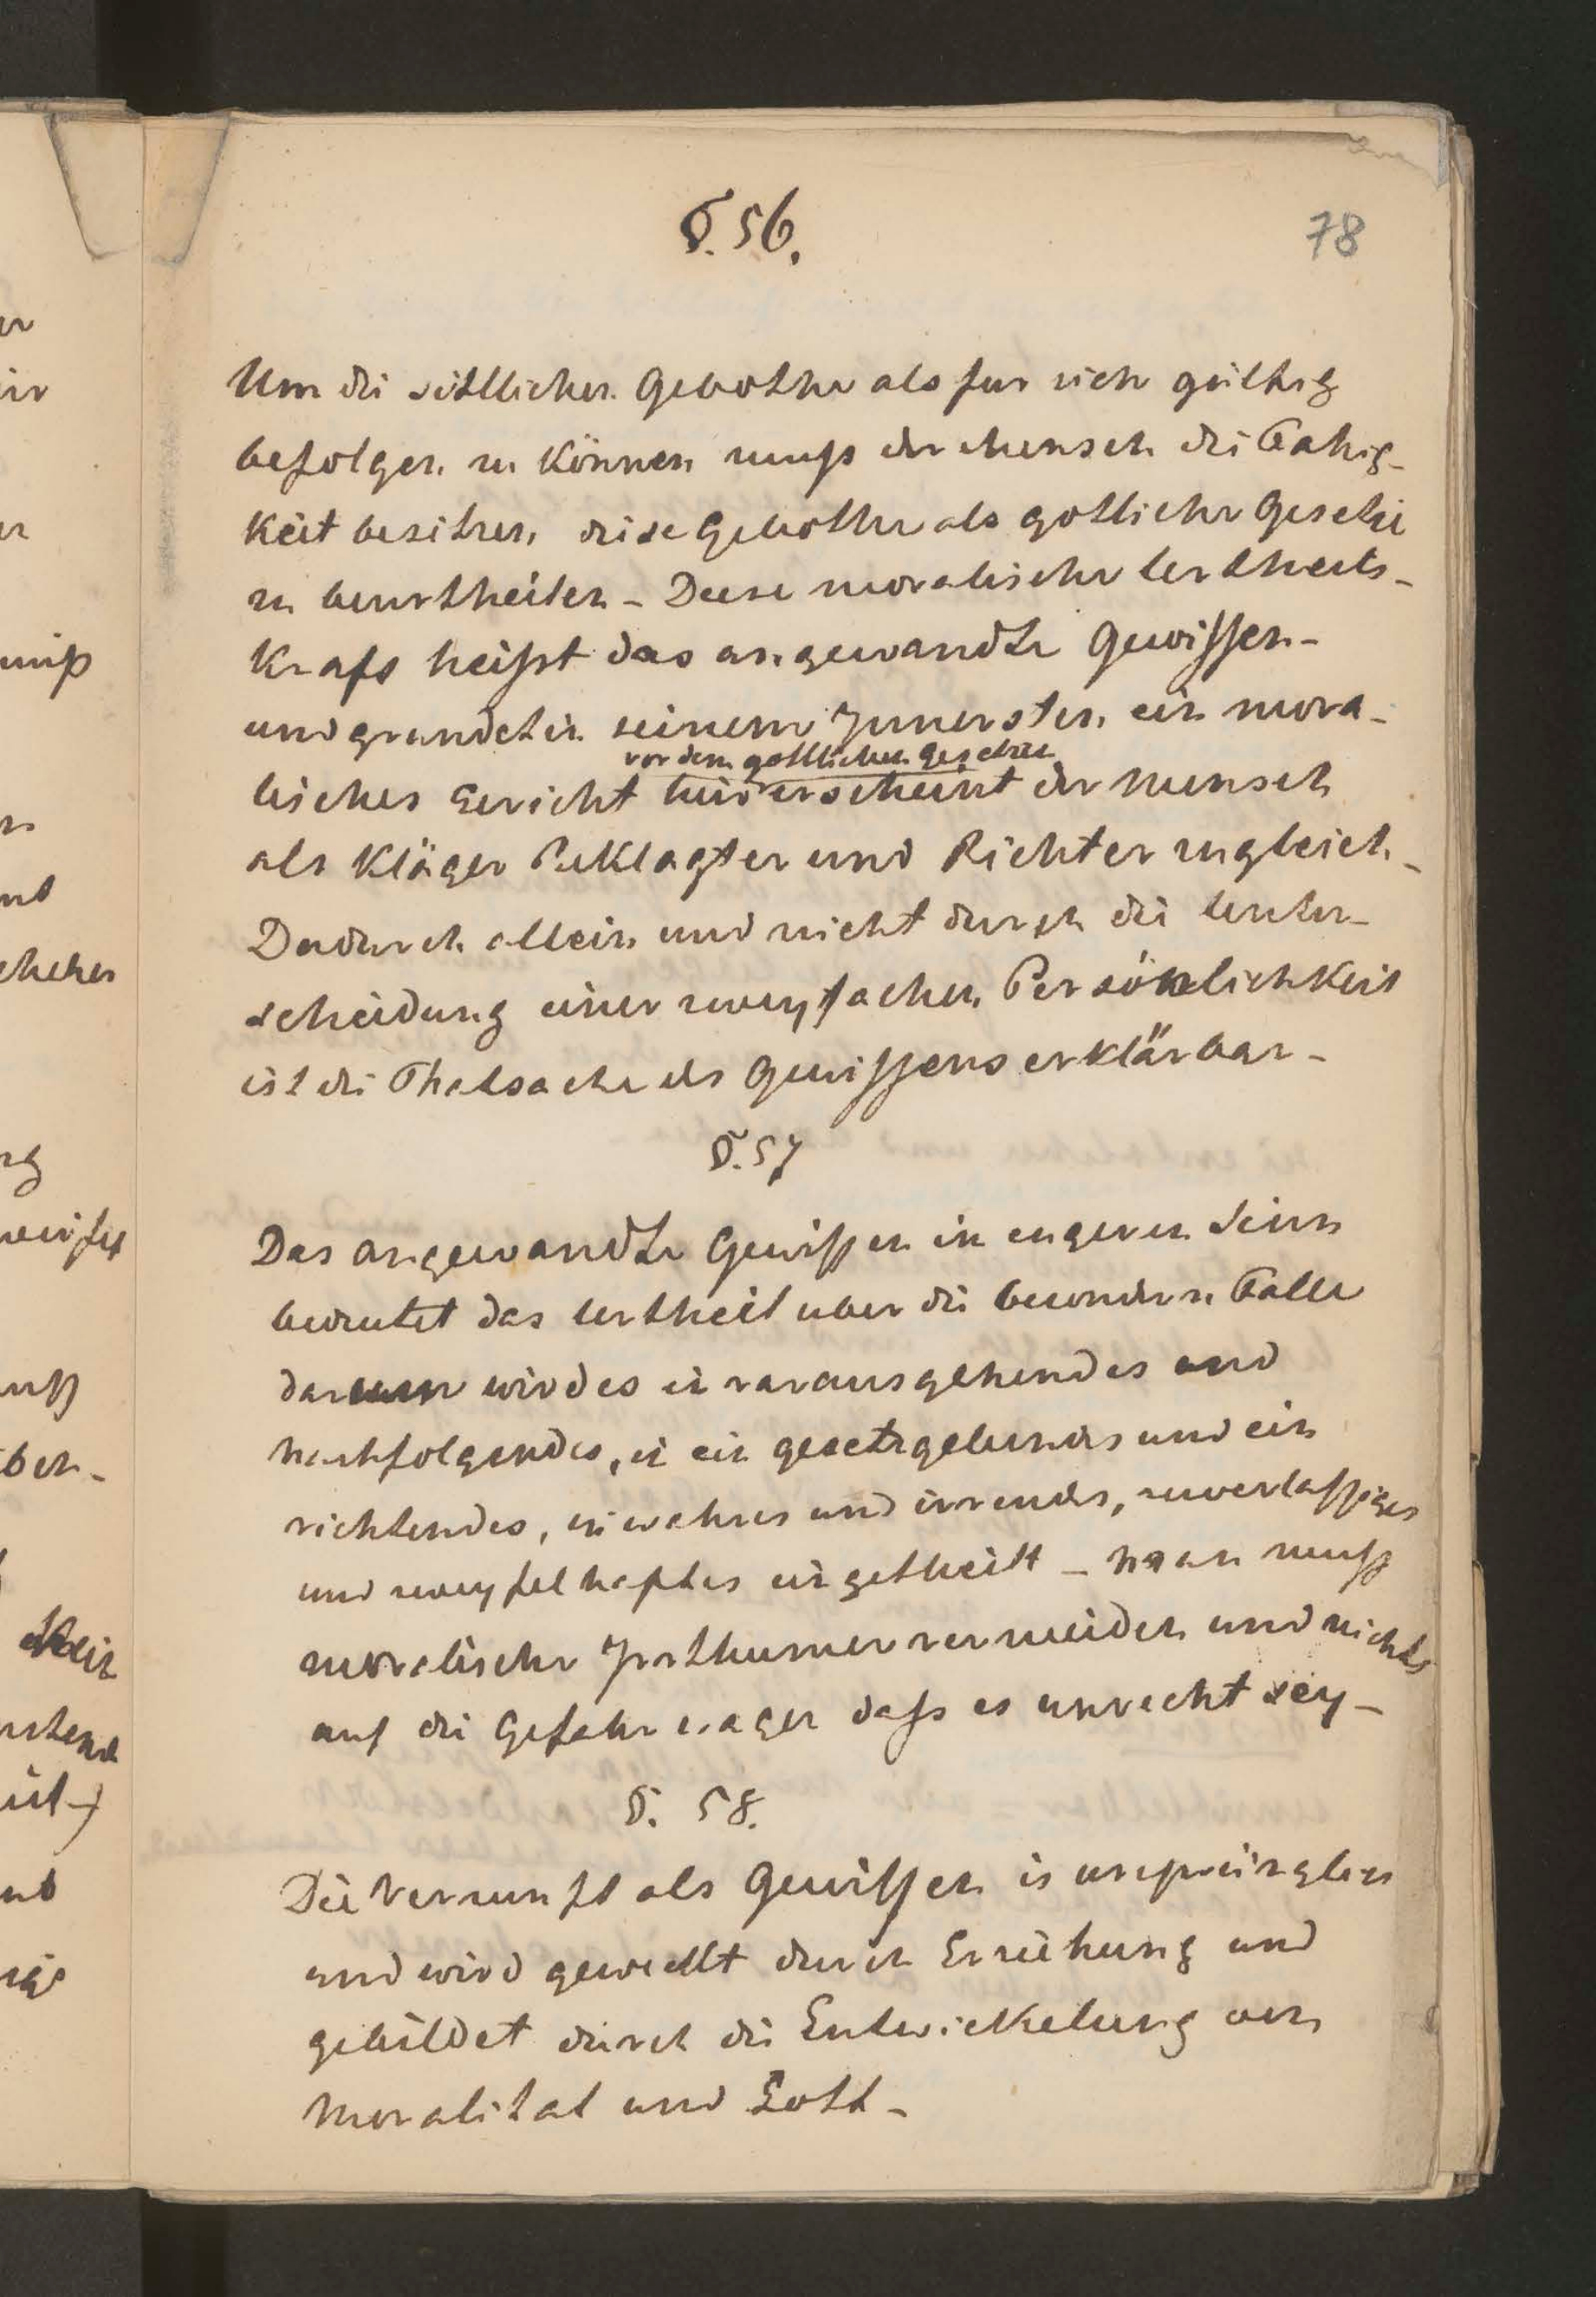 §. 56.
78
Um die sittlichen Gebothe als fur sich gültig
befolgen zu können muß der Mensch die Fahig-
keit besitzen, diese Gebothe als gottliche Gesetze
zu beurtheilen - Diese moralische Urtheils-
kraft heißt das angewandte Gewissen -
und grundet in seinem Innersten ein mora-
vor dem gottlichen Gesetze
lisches Gericht hier erscheint der Mensch
als Kläger Beklagter und Richter zugleich -
Dadurch allein und nicht durch die Unter-
scheidung einer zweyfachen Persönlichkeit
ist die Thatsache des Gewissens erklärbar -
§. 57
Das angewandte Gewissen in engeren Sinn
bedeutet das Urtheil uber die besondern Falle
darum wird es in vorausgehendes und
nachfolgendes, in ein gesetzgebendes und ein
richtendes, in wahres und irrendes, zuverlassiges
und zweyfelhaftes eingetheilt - Man muß
moralische Irrthumer vermeiden und nichts
auf die Gefahr wagen daß es unrecht sey -
§. 58.
Die Vernunft als Gewissen is ursprünglich
und wird geweckt durch Erziehung und
gebildet durch die Entwickelung von
Moralitat und Gott -
er
ir
er
niß
nd
chehen
ng
muß
ben -
nd